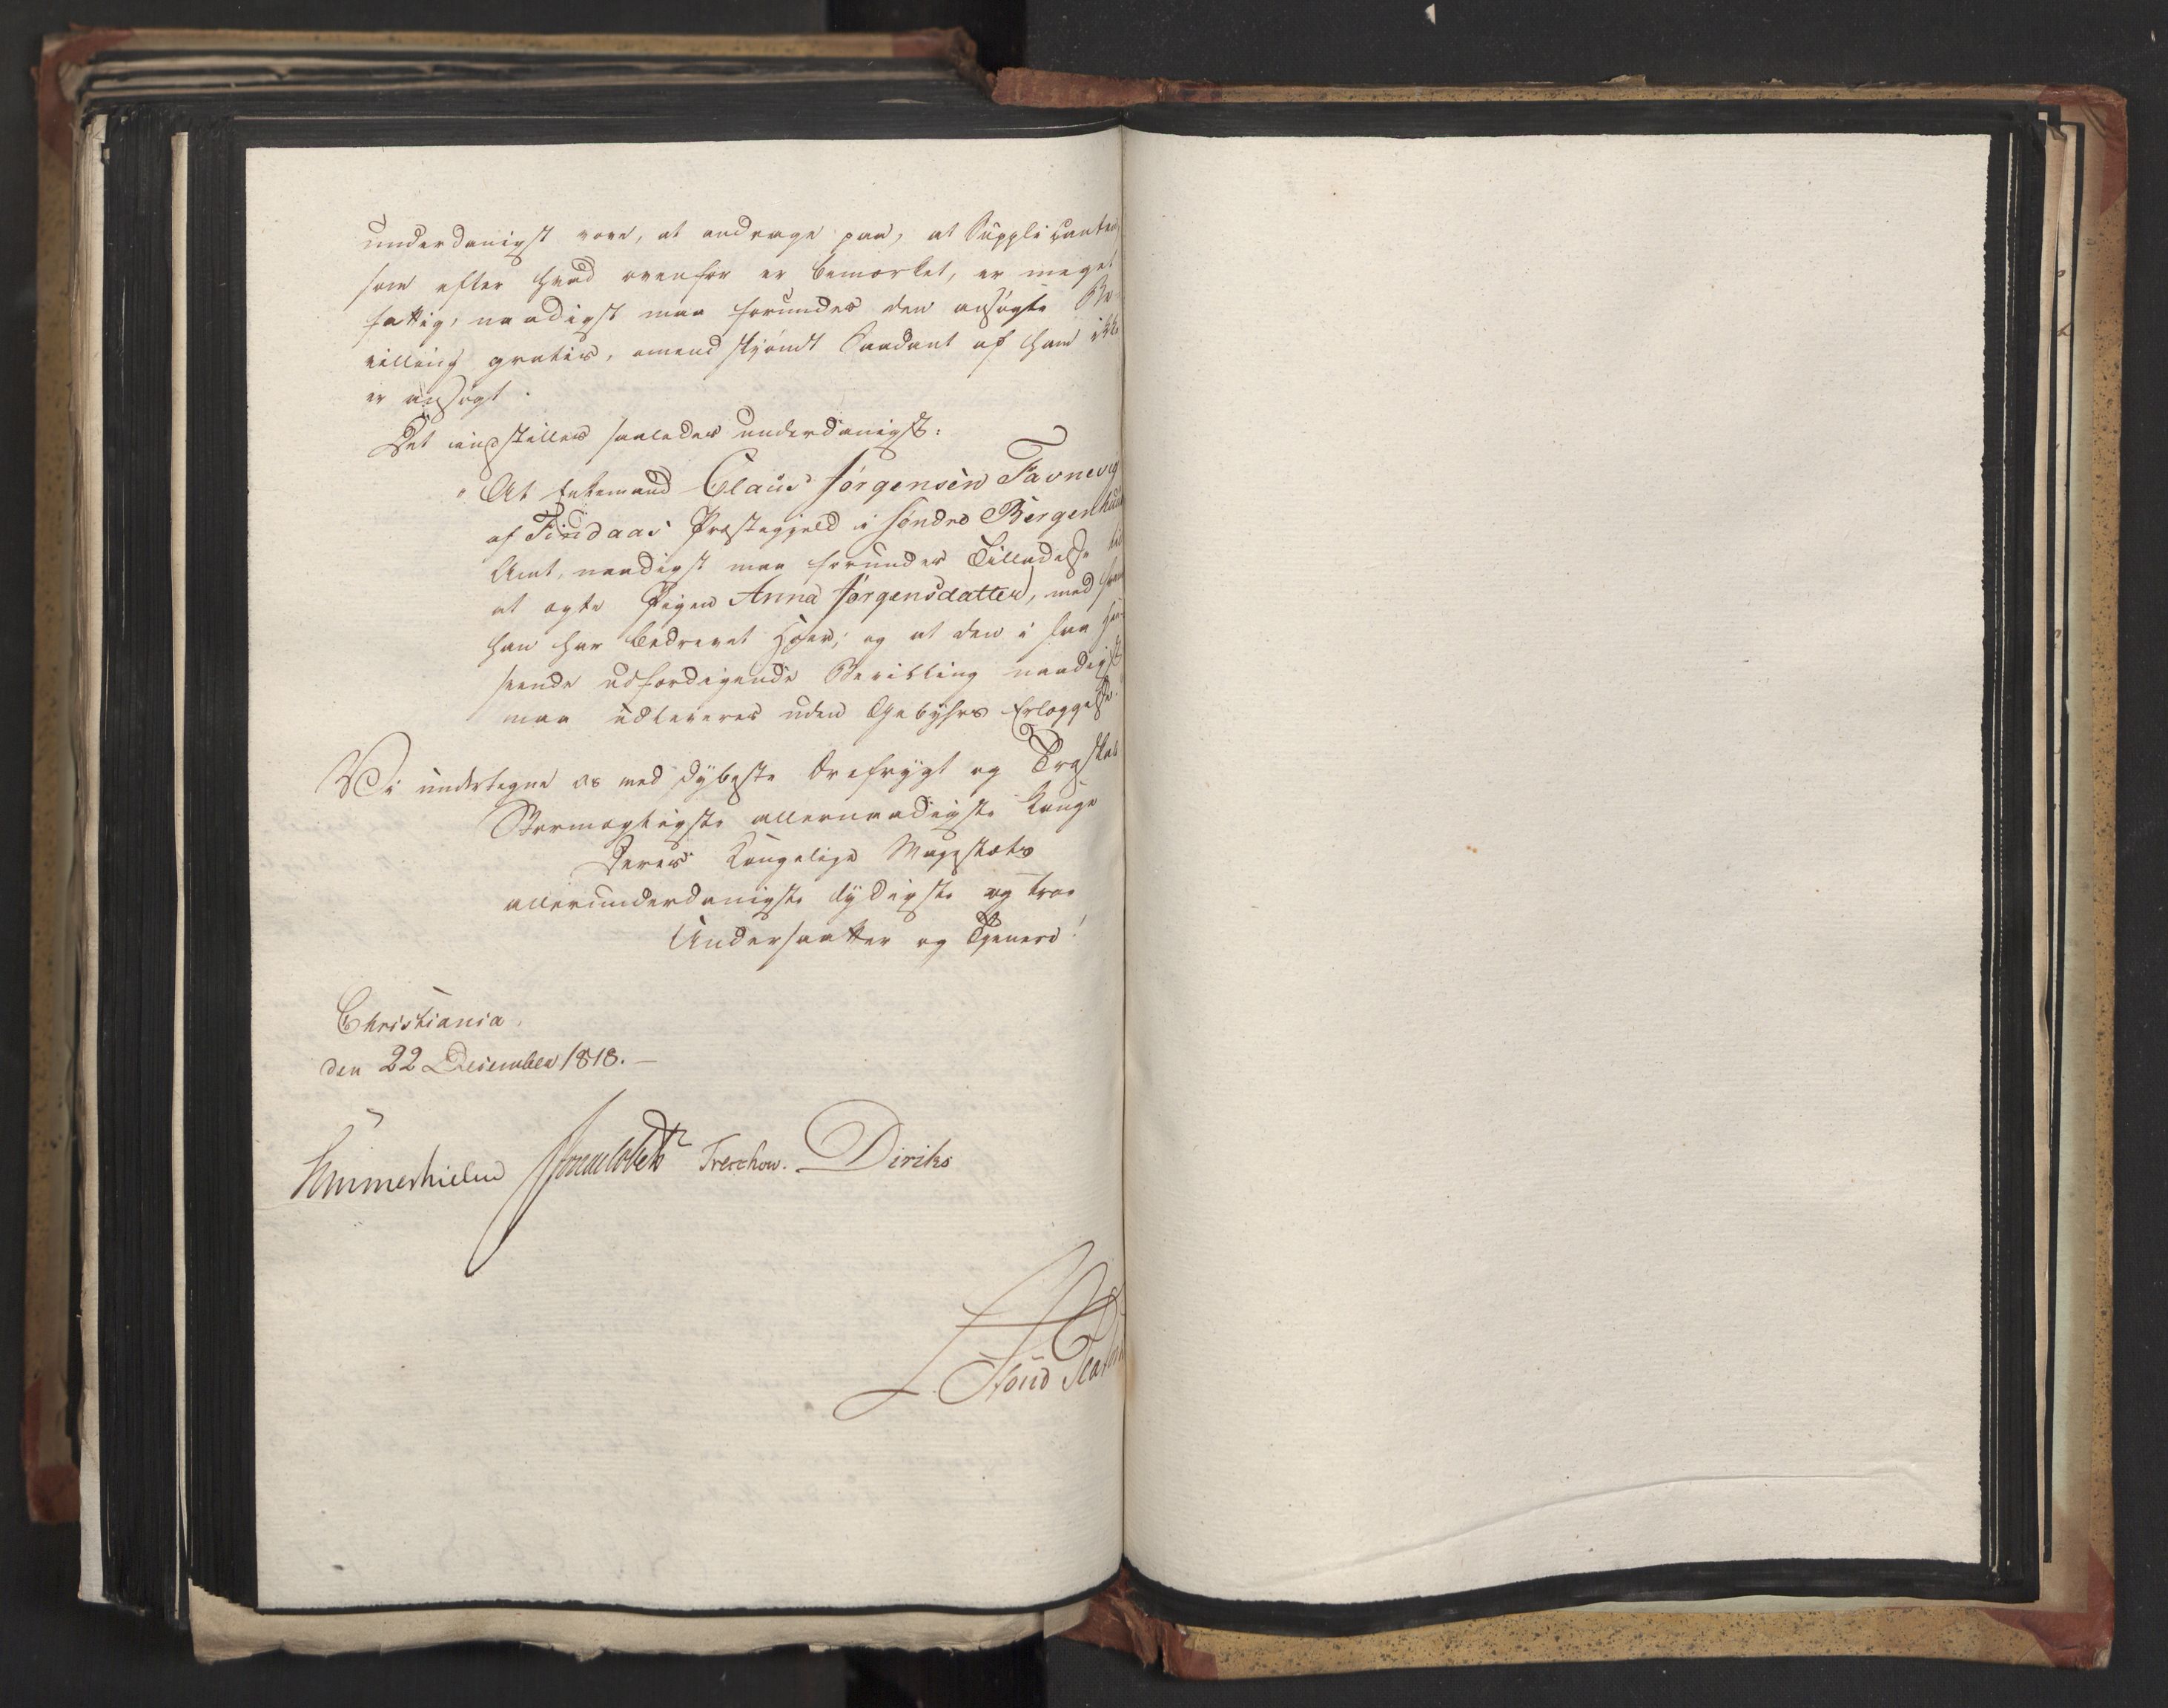 underdanigst vove, at andrage paa, at Supplicanten,
som efter hvad ovenfor er bemærket, er meget
fattig, naadigst maa forundes den ansøgte Be-
villing gratis, omendskjøndt Saadant af ham ikke
er ansøgt.
Det indstilles saaledes underdanigst:
"At Enkemand Claus Jørgensen Favnevig
af Findaas Præstegjeld i Søndre Bergenhuus
Amt, naadigst maa forundes Tilladelse til
at ægte Pigen Anna Jørgensdatter, med hvem
han har bedrevet Hoer; og at den i saa Hen-
seende udfærdigende Bevilling naadigst
maa udleveres uden Gebyhrs Erlæggelse."
Vi undertegne os med dybeste Ærefrygt og Troskab
Stormægtigste allernaadigste Konge
Deres Kongelige Majestæts
allerunderdanigste lydigste og troe
Undersaatter og Tjenere!
Christiania,
den 22 Desember 1818. —
Hummerhielm Sommelsted Treschow. Diriks